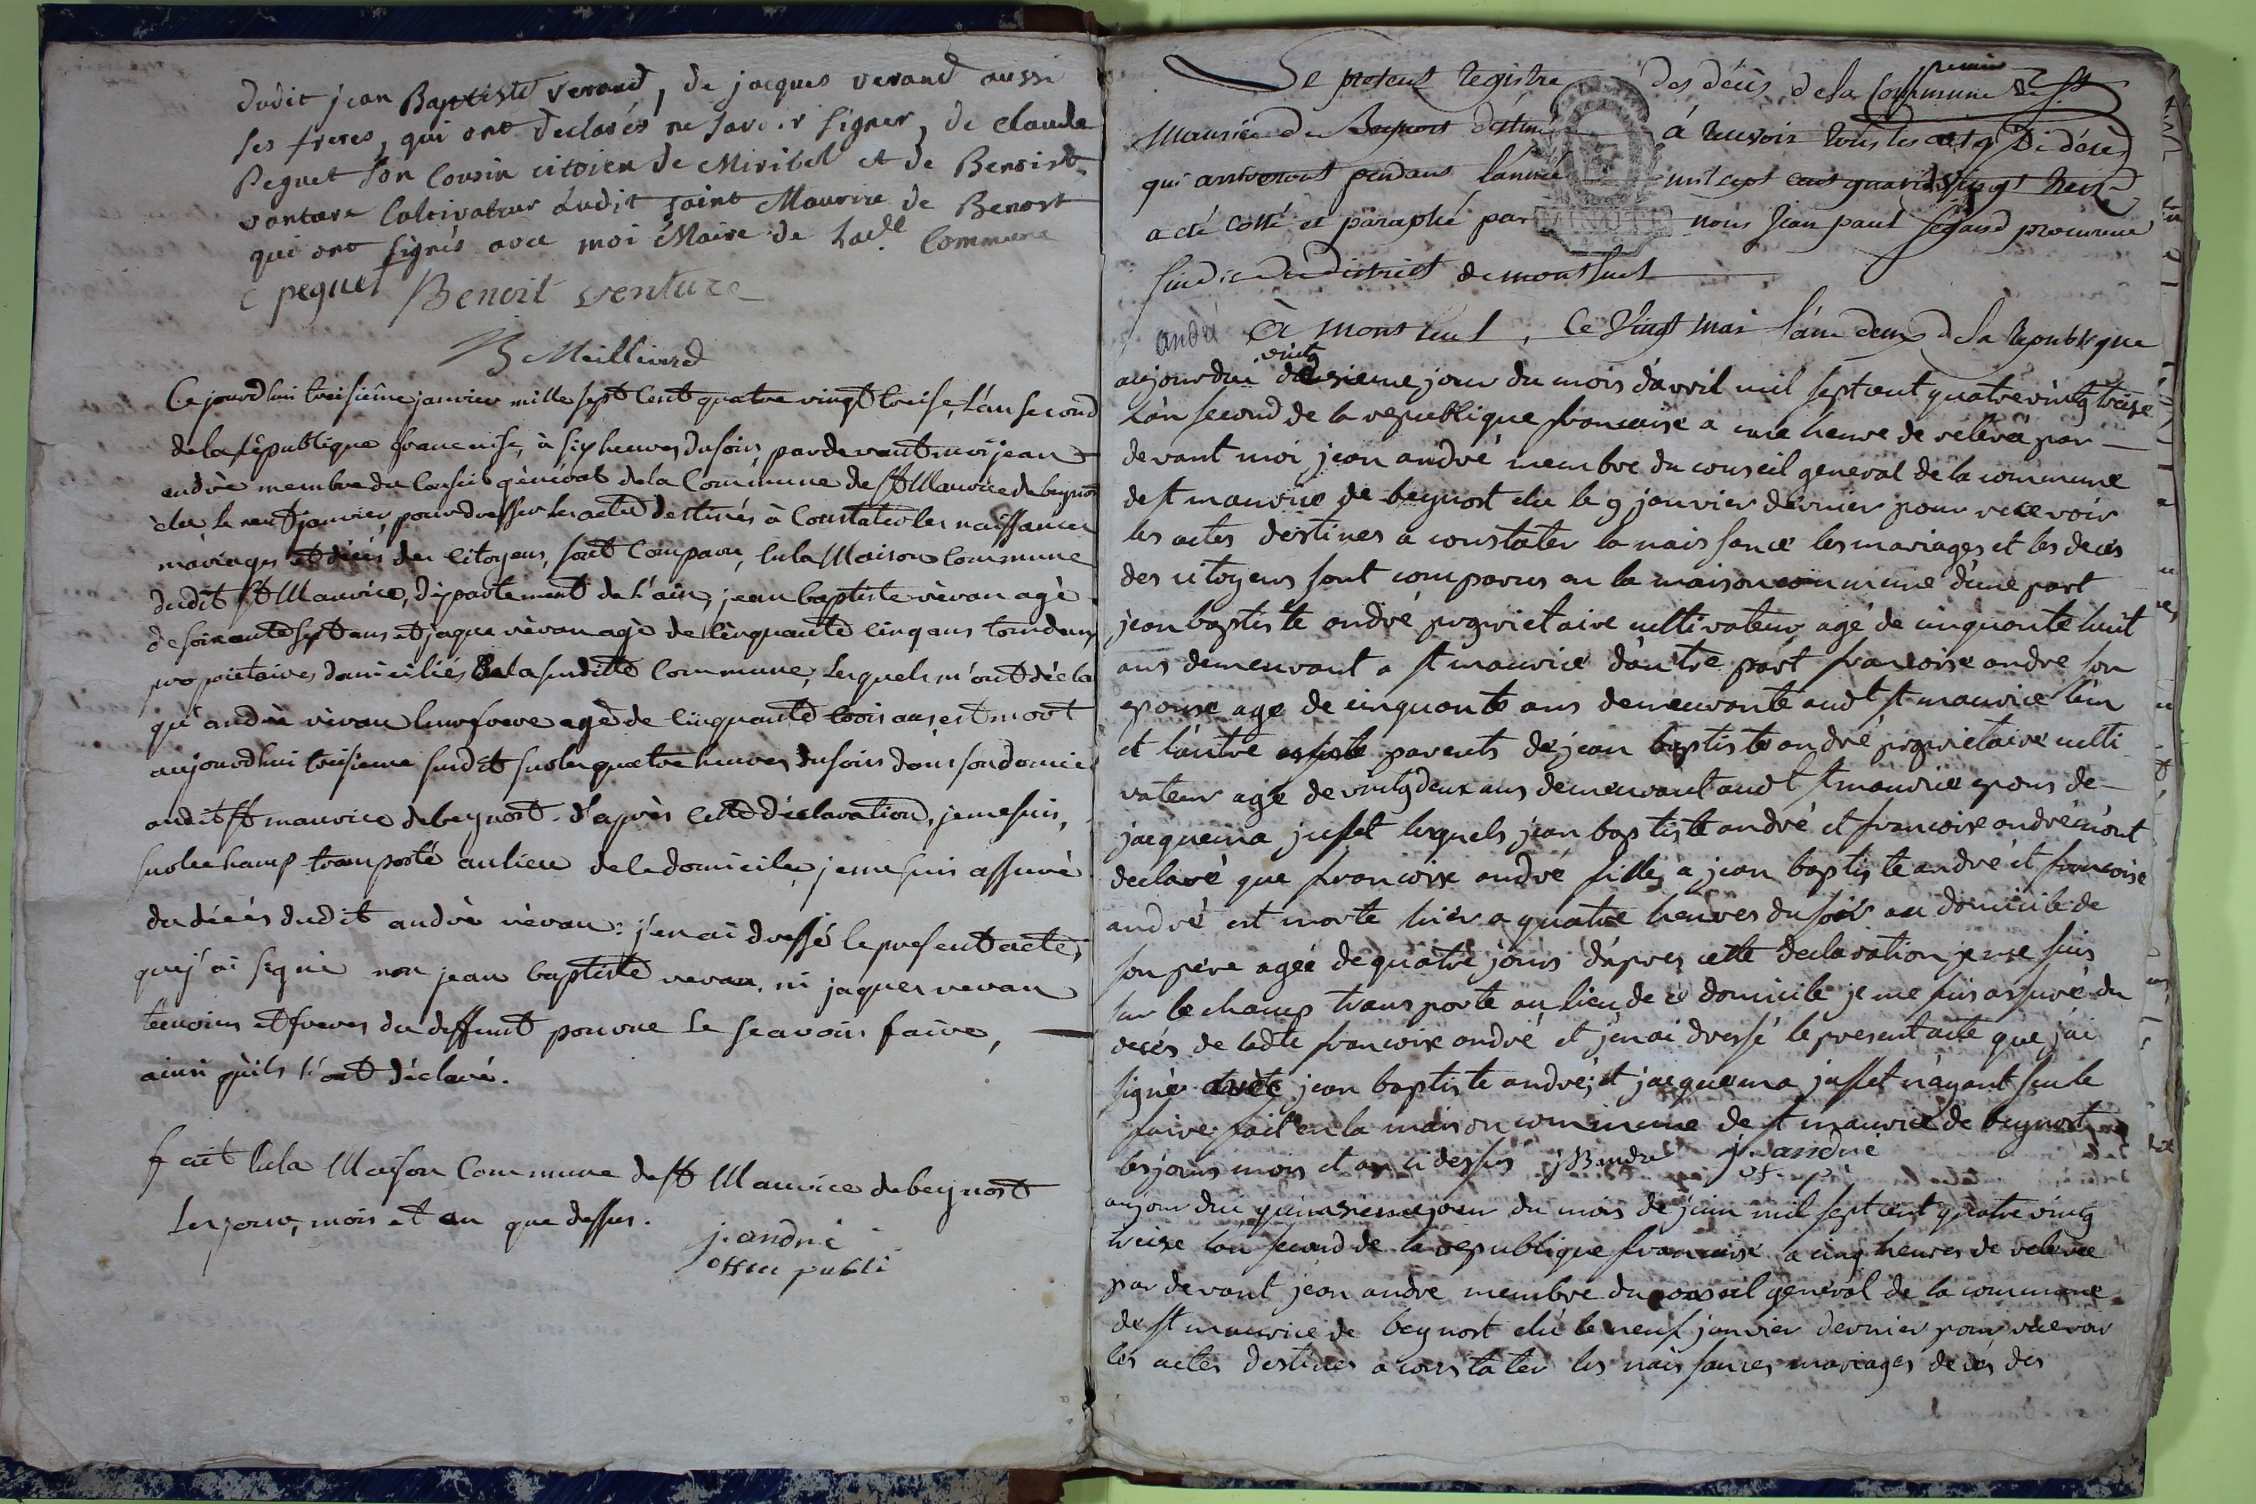 dudit jean Baptiste verand, de jacques verand aussi
ses freres, qui ont declarés ne savoir signer, de claude
Peguet son cousin citoien de Miribel et de Benoist
vanture Cultivateur dudit saint Maurice de Benost
qui ont signés avec moi Maire de lade Commune
C peguet Benoit venture
B Meilliand
Ce jourdhui troisième janvier mille sept cent quatre vingt treise, L'an second
de la République francaise, à six heures du soir, par devant moi jean
andrè membre du Conseil gènéral de la Commune de St Maurice de beynost
èlu le neuf janvier pour dresser les actes destinés à Constater les naissances
mariages et décès des Citoyens, sont Comparu, en la Maison Commune
dudit St Maurice, Département de L'ain, jean baptiste vèran agè
de soixante sept ans et jaque vèran agè de Cinquante Cinq ans tous deux
propriètaires domiciliés de la susditte Commune, Lesquels m'ont décla
qu'andrè vèran leur frere agè de Cinquante trois ans est mort
aujourdhui troisieme susdit sur les quatre heures du soir dans son domicil
audit St maurice de beynost. d'après Cette Déclaration, je me suis,
sur le champ transporté au lieu de le domicile, je me suis assuré
du décès dudit andrè vèran: j'en ai dressé le present acte,
que j'ai signé non jean baptiste veran, ni jaques veran
temoins et freres du deffunt pour ne le scavoir faire,
ainsi qu'ils l'ont déclaré.
fait en la Maison Commune de St Maurice de beynost
Les jour, mois et an que dessus.
j. andrè
offici publi
Le present registre des décès de la Commune de St
Maurice de Beynost destiné à recevoir tous les actes De décès
qui arriveront pendant l'année mil sept cent quatre vingt treize
a été cotté et paraphé par nous Jean paul segaud procureur
sindic du district de montluel
andré À montluel, Ce vingt mai l'an deux de la republique
aujourdui vintg deusieme jour du mois d'avril mil sept cent quatre vintg treize
L'an second de la republique francaise a une heure de relevé par
devant moi jean andré membre du conseil general de la commune
de st maurice de beynost elu le 9 janvier dernier pour recevoir
les actes destines a constater la naissance les mariages et les deces
des citoyens sont comparus en la maison commune d'une part
jean baptiste andré propriétaire cultivateur agé de cinquante huit
ans demeurant a st maurice d'autre part francoise andre son
epouse age de cinquante ans demeurante audt st maurice l'un
et l'autre parents de jean baptiste andré propriétaire culti
vateur age de vintg deux ans demeurant audt st maurice epous de
jaquema juffet lesquels jean baptiste andré et francoise andré m'ont
declaré que francoise andré fille a jean baptiste andré et francoise
andré est morte hier a quatre heures du soir au domicile de
son père agée de quatre jours d'apres cette declaration je me suis
sur le champ transporte au lieu de ce domicile je me suis assuré du
décés de ladte francoise andré et j'en ai dressé le present acte que j'ai
signé avec jean baptiste andré; et jaquema juffet n'ayant seu le
faire fait en la maison commune de st maurice de beynost
les jours mois et an ci dessus jBandré j. andrié
of. p
aujourdui quinzieme jour du mois de juin mil sept cent quatre vintg
treize l'an second de la republique francaise a cinq heures de relevée
par devant jean andre membre du conseil general de la commune
de st maurice de beynost elu le neuf janvier dernier pour recevoir
les actes destinés a constater les naissances mariages decès des